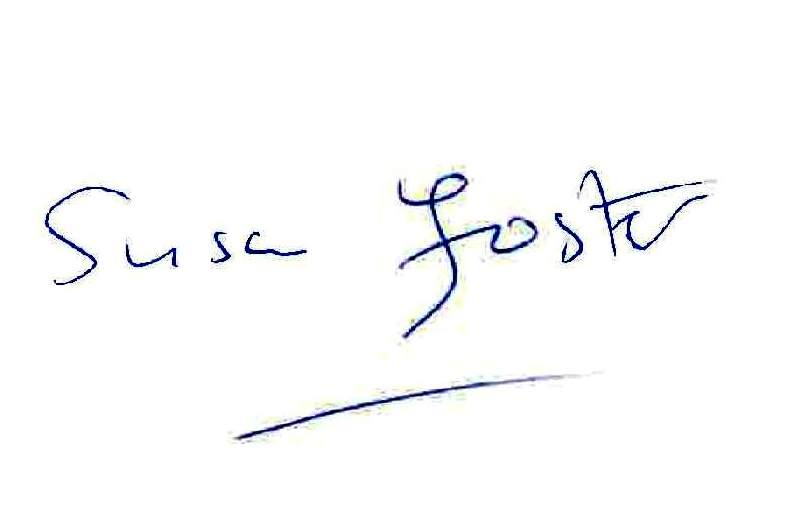 Susan Foster